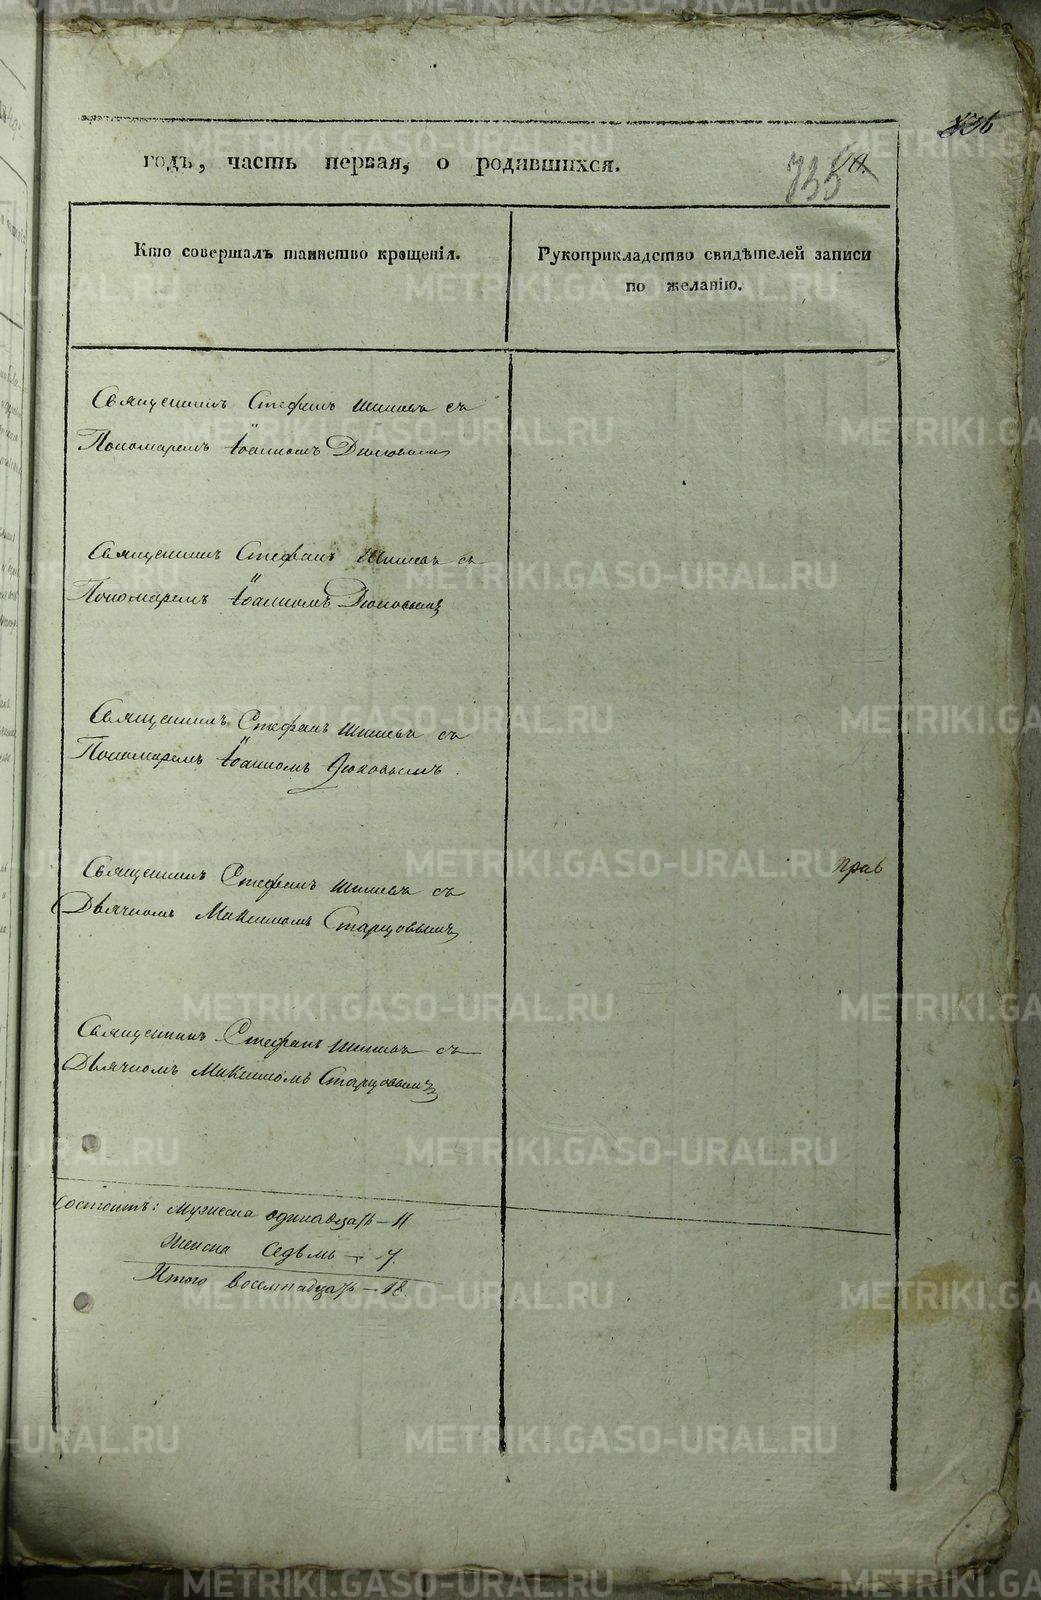 годъ, часть первая, о родившихся.
735
Кто совершалъ таинство крещенія.
Рукоприкладство свидѣтелей записи
по желанію.
Священникъ Стефанъ Шишевъ съ
Пономаремъ Іоанномъ Дюковымъ
Священникъ Стефанъ Шишевъ съ
Пономаремъ Іоанномъ Дюковымъ
Священникъ Стефанъ Шишевъ съ
Пономаремъ Іоанномъ Дюковымъ.
Священникъ Стефанъ Шишевъ съ
Дьячкомъ Максимомъ Старцовымъ
прав
Священникъ Стефанъ Шишевъ съ
Дьячкомъ Максимомъ Старцовымъ
Состоитъ: Мужеска одинадцать – 11
Женска седьмь – 7.
Итого восемнадцать – 18.
METRIKI.GASO-URAL.RU